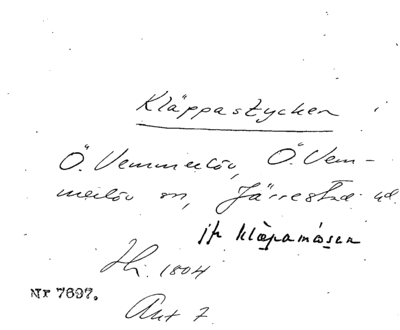 Kläppastycken
Ö. Vemmerlöv, Ö. Vem-
merlöv sn, Järrestad hd
jfr kläpamåsen
Hi. 1804
Nr 7697.
Akt 7